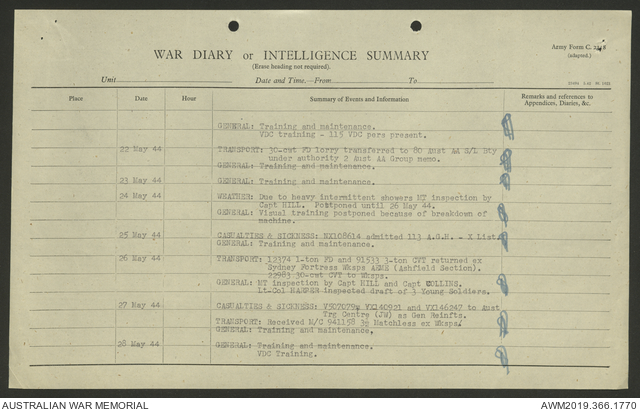 Army Form C. 2118
(adapted.)
WAR DIARY or INTELLIGENCE SUMMARY
(Erase heading not required).
Unit Date and Time.—From To
Place Date Hour Summary of Events and Information Remarks and references to
Appendices, Diaries, &c.
GENERAL: Training and maintenance.
VDC training - 115 VDC pers present.
22 May 44 TRANSPORT: 30-cwt FD lorry transferred to 80 Aust AA S/L Bty
under authority 2 Aust AA Group memo.
GENERAL: Training and maintenance.
23 May 44 GENERAL: Training and maintenance.
24 May 44 WEATHER: Due to heavy intermittent showers MT inspection by
Capt HILL. Postponed until 26 May 44.
GENERAL: Visual training postponed because of breakdown of
machine.
25 May 44 CASUALTIES & SICKNESS: NX108614 admitted 113 A.G.H. - X List.
GENERAL: Training and maintenance.
26 May 44 TRANSPORT: 12374 1-ton FD and 91533 3-ton CVT returned ex
Sydney Fortress Wksps AEME (Ashfield Section).
22983 30-cwt CVT to Wksps.
GENERAL: MT inspection by Capt HILL and Capt COLLINS.
Lt-Col HARPER inspected draft of 3 Young Soldiers.
27 May 44 CASUALTIES & SICKNESS: VX140921 and VX146247 to Aust
Trg Centre (JW) as Gen Reinfts.
TRANSPORT: Received M/C 941158 3½ Matchless ex Wksps.
GENERAL: Training and maintenance.
28 May 44 GENERAL: Training and maintenance.
VDC Training.
AUSTRALIAN WAR MEMORIAL AWM2019.366.1770